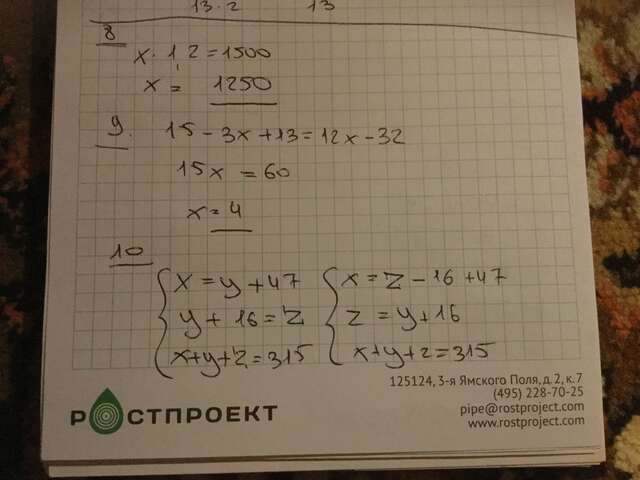 13.2 13
8
x · 1,2 = 1500
x = 1250
9. 15 - 3x + 13 = 12x - 32
15x = 60
x = 4
10
x = y + 47 x = z - 16 + 47
y + 16 = z z = y + 16
x + y + z = 315 x + y + z = 315
125124, 3-я Ямского Поля, д.2, к.7
(495) 228-70-25
pipe@rostproject.com
www.rostproject.com
РОСТПРОЕКТ